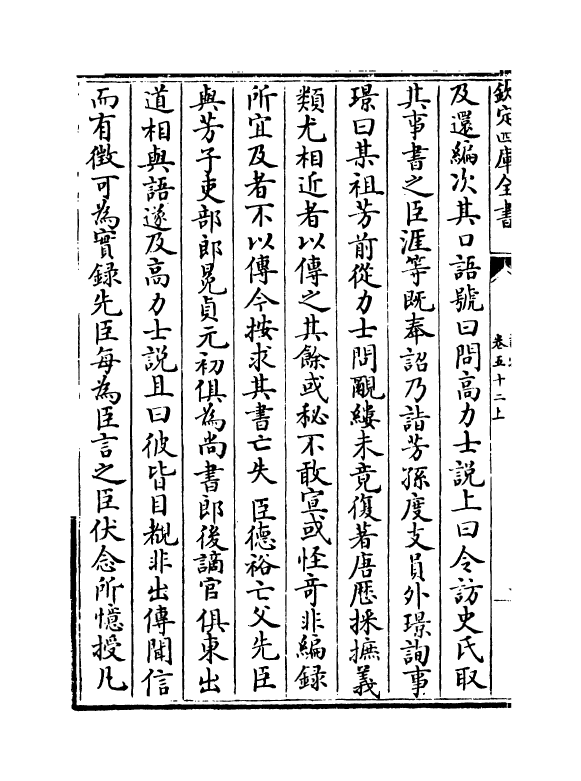 欽定四庫全書
卷五十二上
及還編次其口語號曰問高力士說上曰令訪史氏取
其事書之臣涯等既奉詔乃詣芳孫度支員外璟詢事
璟曰某祖芳前從力士問覼縷未竟復著唐歷採摭義
類尤相近者以傳之其餘或秘不敢宣或怪奇非編錄
所宜及者不以傳今按求其書亡失 臣德裕亡父先臣
與芳子吏部郎冕貞元初俱為尚書郎後謫官俱東出
道相與語遂及高力士說且曰彼皆目覩非出傳聞信
而有徵可為實録先臣每為臣言之臣伏念所憶授凡